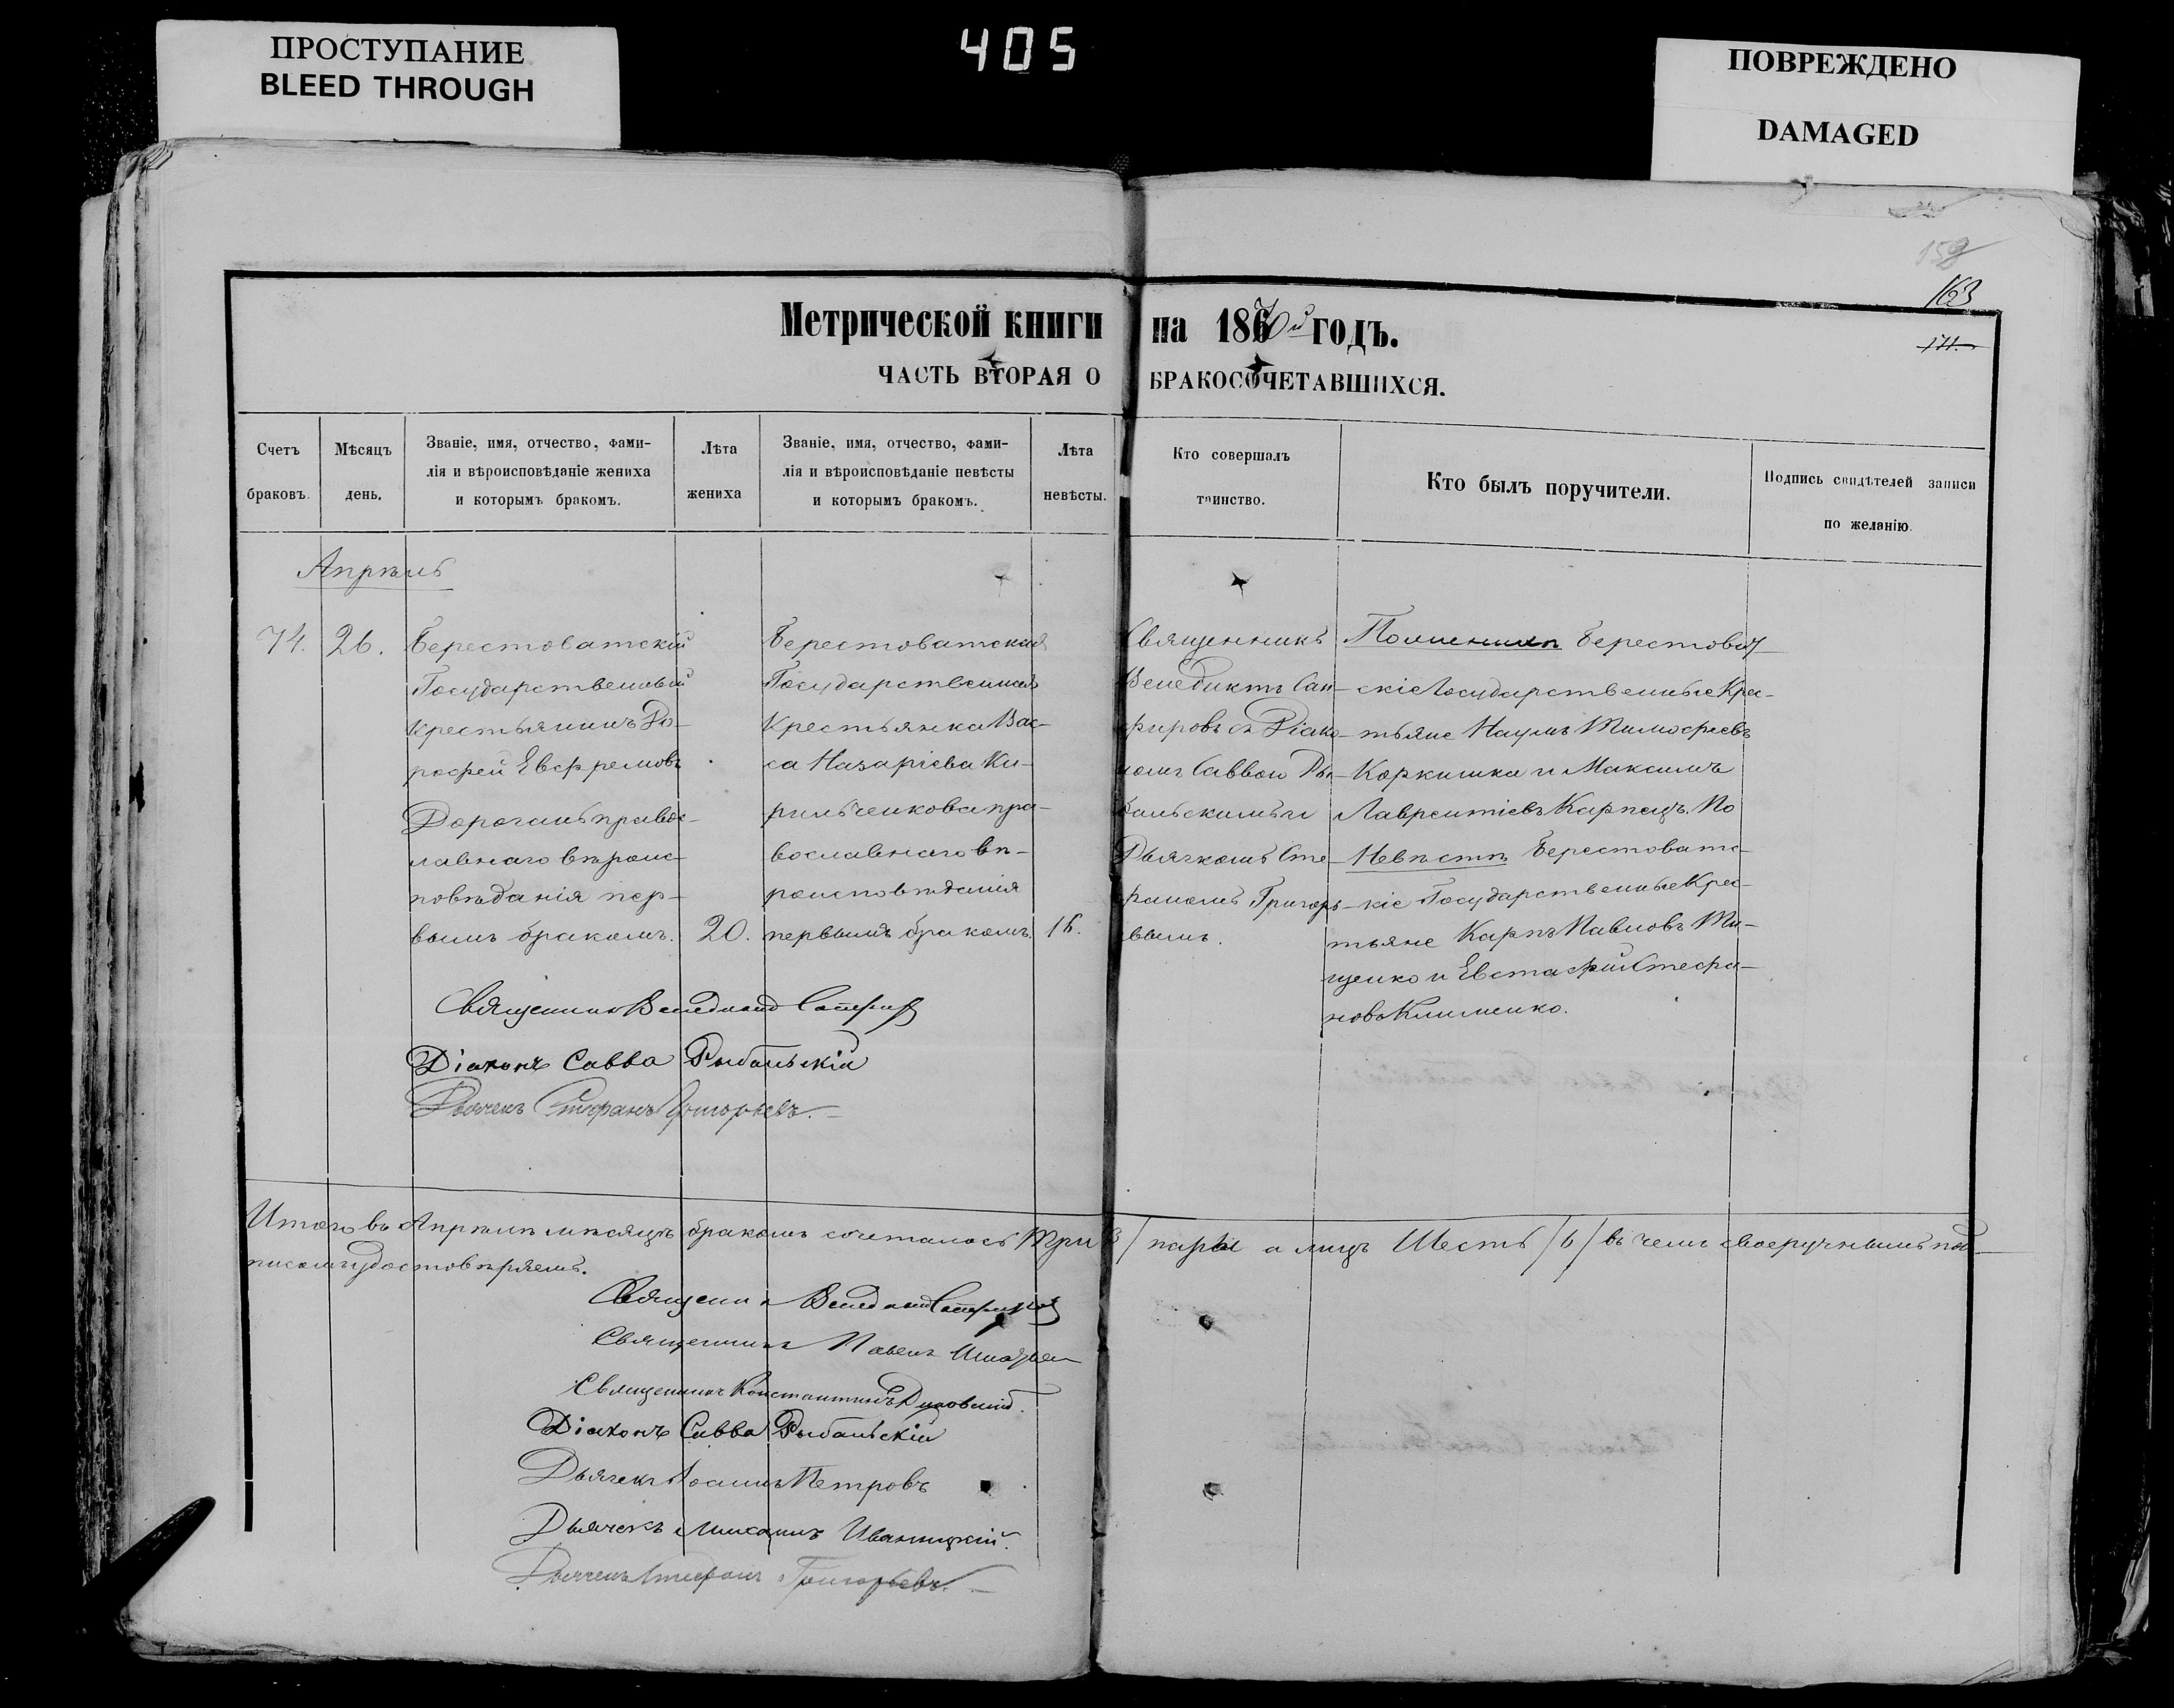 ПРОСТУПАНИЕ
BLEED THROUGH
405
ПОВРЕЖДЕНО
DAMAGED
159
163
171.
Метрической книги на 1870й годъ.
ЧАСТЬ ВТОРАЯ О БРАКОСОЧЕТАВШИХСЯ.
Счетъ
браковъ.
Мѣсяцъ
день.
Званіе, имя, отчество, фами-
лія и вѣроисповѣданіе жениха
и которымъ бракомъ.
Лѣта
жениха
Званіе, имя, отчество, фами-
лія и вѣроисповѣданіе невѣсты
и которымъ бракомъ.
Лѣта
невѣсты.
Кто совершалъ
таинство.
Кто былъ поручители.
Подпись свидѣтелей записи
по желанію.
Апрѣль
74.
26.
Берестоватскій
Государственный
Крестьянинъ До-
рофей Евфремовъ
Дорогань правос-
лавнаго вѣроис-
повѣданія пер-
вымъ бракомъ.
20.
Берестоватская
Государственная
Крестьянка Вас-
са Назаріева Ки-
рильченкова пра-
вославнаго вѣ-
роисповѣданія
первымъ бракомъ.
Священникъ
Венедиктъ Сап-
фировъ съ Діако-
номъ Саввою Ры-
бальскимъ и
Дьячкомъ Сте-
фаномъ Григорь-
вымъ.
Берестоват-
скіе Государственные Крес-
тьяне Наумъ Тимофеевъ
Коркишка и Максимъ
Лаврентіевъ Карпецъ. По
Невѣстѣ Берестоватс-
кіе Государственные Крес-
тьяне Карпъ Павловъ Ти-
щенко и Евстафій Стефа-
новъ Клименко.
Священникъ Венедиктъ Сапфировъ
Діаконъ Савва Рыбальскій
Дьячекъ Стефанъ Григорьевъ.
Итого въ Апрѣлѣ мѣсяцѣ бракомъ сочеталось Три /3/ пары а лицъ Шесть /6/ въ чемъ своеручнымъ под-
писомъ удостовѣряемъ.
Священникъ Венедиктъ Сапфировъ
Священникъ Павелъ
Священникъ Константинъ
Діаконъ Савва Рыбальскій
Дьячекъ Іоаннъ Петровъ
Дьячекъ Михаилъ Иваницкій.
Дьячекъ Стефанъ Григорьевъ.